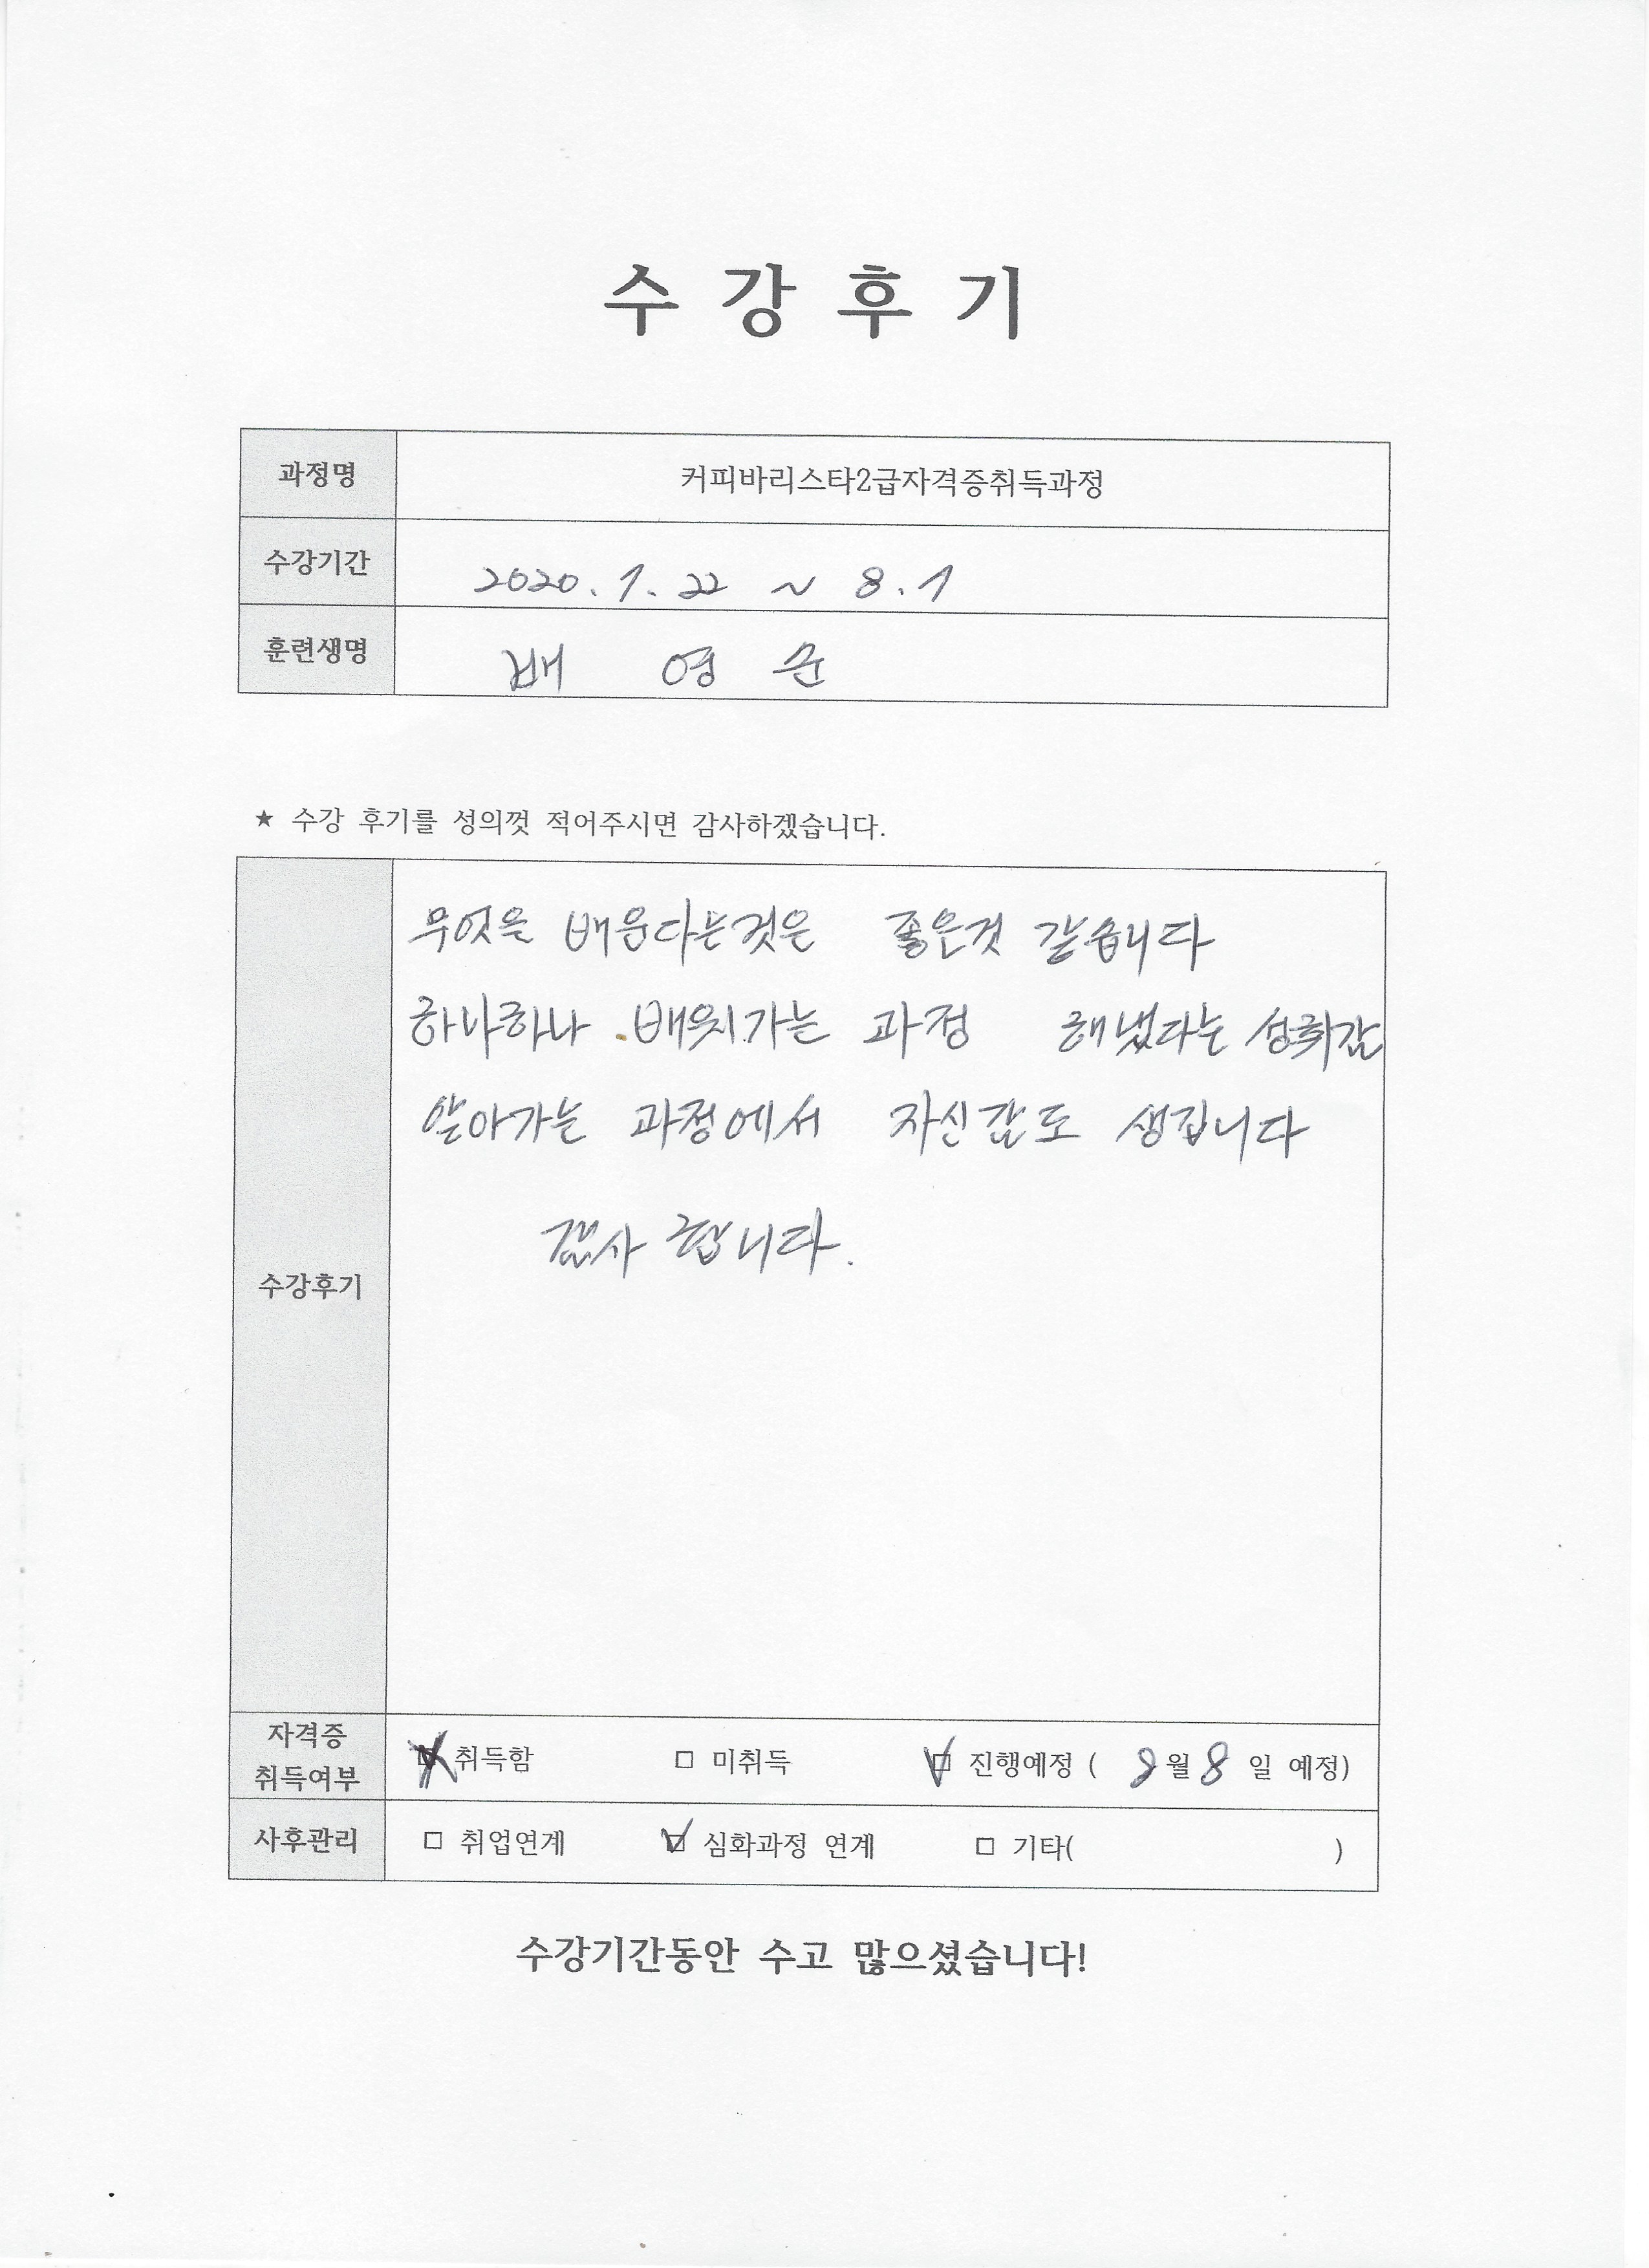 수강후기
과정명 커피바리스타2급자격증취득과정
수강기간 2020. 7. 22 ~ 8. 1
훈련생명 배 영 순
★ 수강 후기를 성의껏 적어주시면 감사하겠습니다.
무엇을 배운다는것은 좋은것 같습니다
하나하나 배워가는 과정 해냈다는 성취감
알아가는 과정에서 자신감도 생깁니다
감사 합니다.
수강후기
자격증 취득여부 ☑ 취득함 □ 미취득 ☑ 진행예정 ( 월 8 일 예정)
사후관리 □ 취업연계 ☑ 심화과정 연계 □ 기타( )
수강기간동안 수고 많으셨습니다!